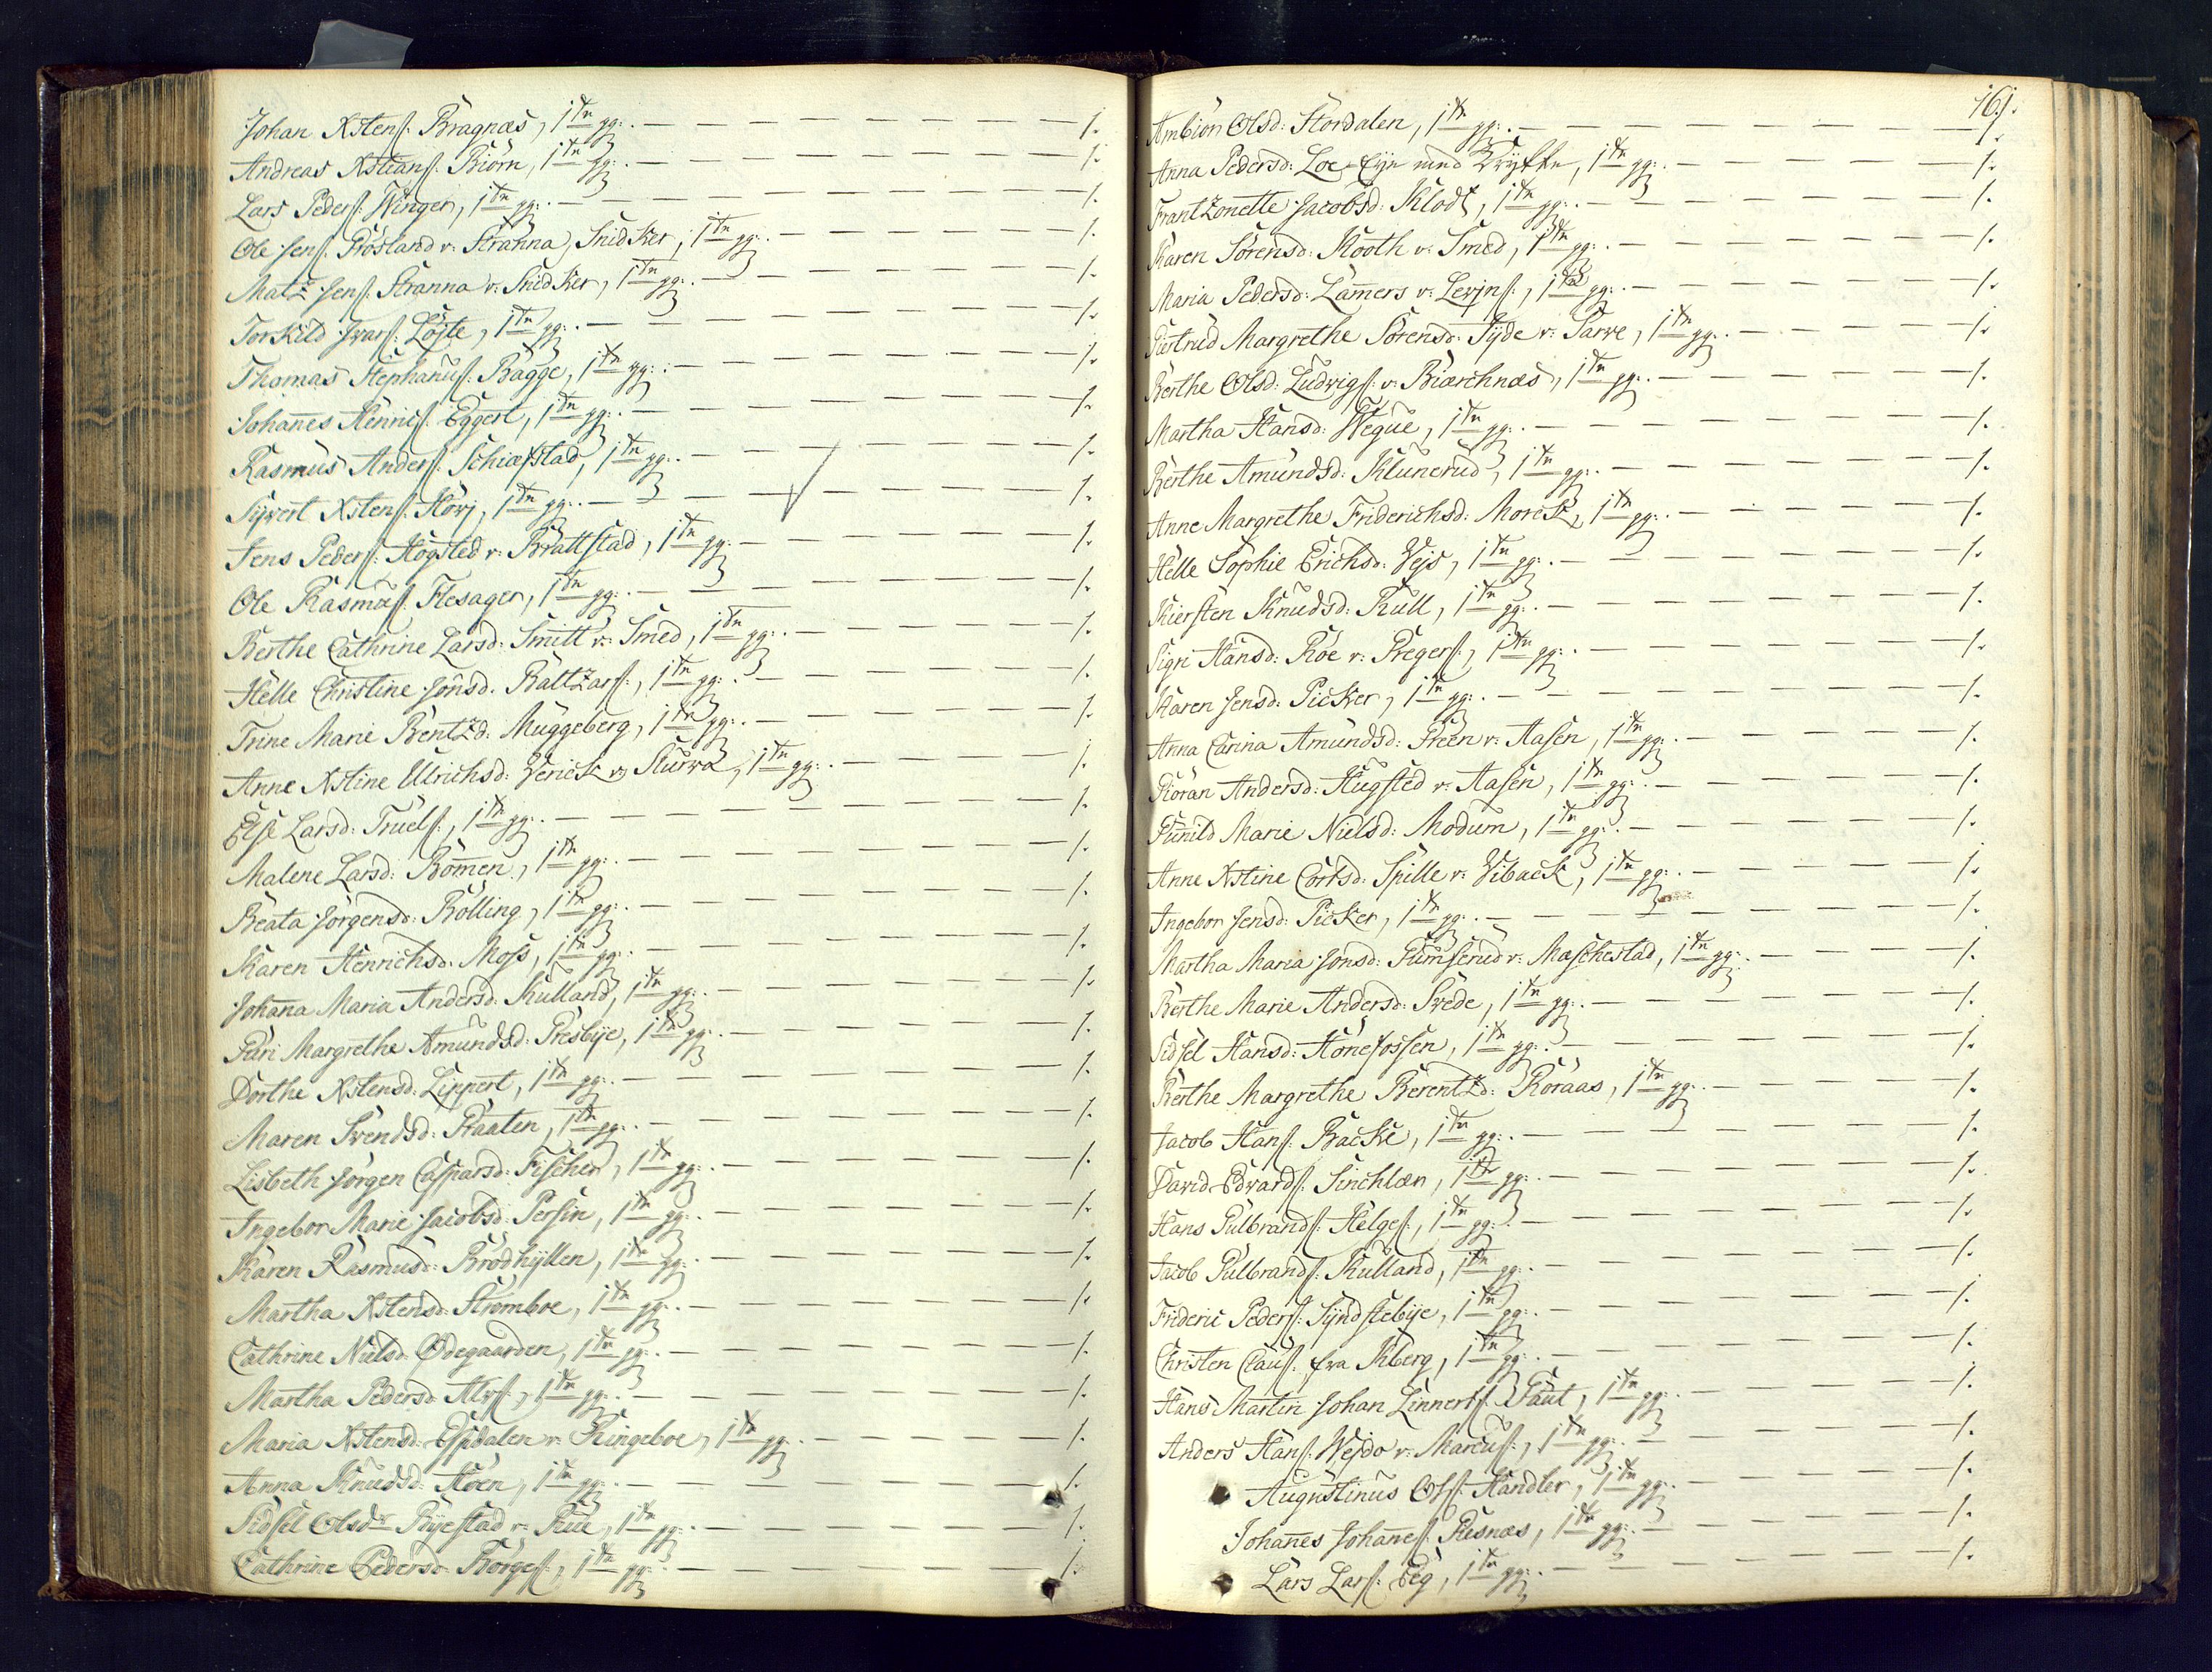 Johan Xstens: Bragnæs, 1te gg: — 1.
Andreas Xstians: Biörn, 1te gg: — 1.
Lars Peders: Winger, 1te gg: — 1.
Ole Jens: Frösland v: Stranna, Snidker, 1te gg: — 1.
Matz Jens: Stranna v: Snidker, 1te gg: — 1.
Torkild Ivars: Löjte, 1te gg: — 1.
Thomas Stephanus: Bagge, 1te gg: — 1.
Johanes Henrics: Eggert, 1te gg: — 1.
Rasmus Anders: 1te gg: — 1.
Syvert Xstens: 1te gg: — 1.
Jens Peders: Hogsted v: Brattstad, 1te gg: — 1.
Ole Rasmus: Flesager, 1te gg: — 1.
Berthe Cathrine Larsd: Smitt v: Smed, 1te gg: — 1.
Helle Christine Jonsd: Baltzars:, 1te gg: — 1.
Trine Marie Bentzd: Muggeberg, 1te gg: — 1.
Anne Xstine Ulrichsd: 1te gg: — 1.
Else Larsd: Truels:, 1te gg: — 1.
Malene Larsd: Bomen, 1te gg: — 1.
Beata Jörgensd: Bölling, 1te gg: — 1.
Karen Henrichsd: Moss, 1te gg: — 1.
Johana Maria Andersd: Kulland, 1te gg: — 1.
Guri Margrethe Amundsd: Presbye, 1te gg: — 1.
Dorthe Xstensd: Lippert, 1te gg: — 1.
Maren Svendsd: Braaten, 1te gg: — 1.
Lisbeth Jörgen Caspersd: Fischer, 1te gg: — 1.
Ingebor Marie Jacobsd: Persin, 1te gg: — 1.
Karen Rasmusd: Brödhyllen, 1te gg: — 1.
Martha Xstensd: Stromboe, 1te gg: — 1.
Cathrine Nielsd: Ödegaarden, 1te gg: — 1.
Martha Pedersd: Alvs:, 1te gg: — 1.
Maria Xstensd: Espedalen v: Ringeboe, 1te gg: — 1.
Anna Knudsd: Hoen, 1te gg: — 1.
Sidsel Olsdr Byestad v: Rue, 1te gg: — 1.
Cathrine Pedersd: Börges:, 1te gg: — 1.
161.
Ambiör Olsd: Stordalen, 1te gg: — 1.
Anna Pedersd: Loe-Eje med 1te gg: — 1.
Frantzonette Jacobsd: Klodt, 1te gg: — 1.
Karen Sörensd: Kooth v: Smed, 1te gg: — 1.
Maria Pedersd: Lamers v: Levins:, 1te gg: — 1.
Giertrud Margrethe Sörensd: Syde v: Sarve, 1te gg: — 1.
Berthe Olsd: Ludvigs: v: Biærchnæs, 1te gg: — 1.
Martha Hansd: Wegue, 1te gg: — 1.
Berthe Amundsd: Klunerud, 1te gg: — 1.
Anne Margrethe Friderichsd: Morck, 1te gg: — 1.
Helle Sophie Erichsd: Vejs, 1te gg: — 1.
Kiersten Knudsd: Kull, 1te gg: — 1.
Sigri Hansd: Röe v: Gregers:, 1te gg: — 1.
Karen Jensd: Picker, 1te gg: — 1.
Anna Carina Amundsd: Steen v: Aasen, 1te gg: — 1.
Giöran Andersd: Hugsted v: Aasen, 1te gg: — 1.
Gunild Marie Nielsd: Modum, 1te gg: — 1.
Anne Xstine Cortsd: Spille v: Viback, 1te gg: — 1.
Ingebor Jensd: Picker, 1te gg: — 1.
Martha Maria Jonsd: Gumserud v: Maschestad, 1te gg: — 1.
Berthe Marie Andersd: Svede, 1te gg: — 1.
Sidsel Hansd: Hönefossen, 1te gg: — 1.
Berthe Margrethe Berentzd: Röraas, 1te gg: — 1.
Jacob Hans: Backe, 1te gg: — 1.
David Edvards: Sinchlæn, 1te gg: — 1.
Hans Gulbrands: Helges:, 1te gg: — 1.
Jacob Gulbrands: Kulland, 1te gg: — 1.
Frideric Peders: Syndstebye, 1te gg: — 1.
Christen Claus: fra Kberg, 1te gg: — 1.
Hans Martin Johan Linnerts: Gaut, 1te gg: — 1.
Anders Hans: Wejdo v: Marcus:, 1te gg: — 1.
Augustinus Ols: Handler, 1te gg: — 1.
Johanes Johanes: Resnæs, 1te gg: — 1.
Lars Lars: Eeg, 1te gg: — 1.